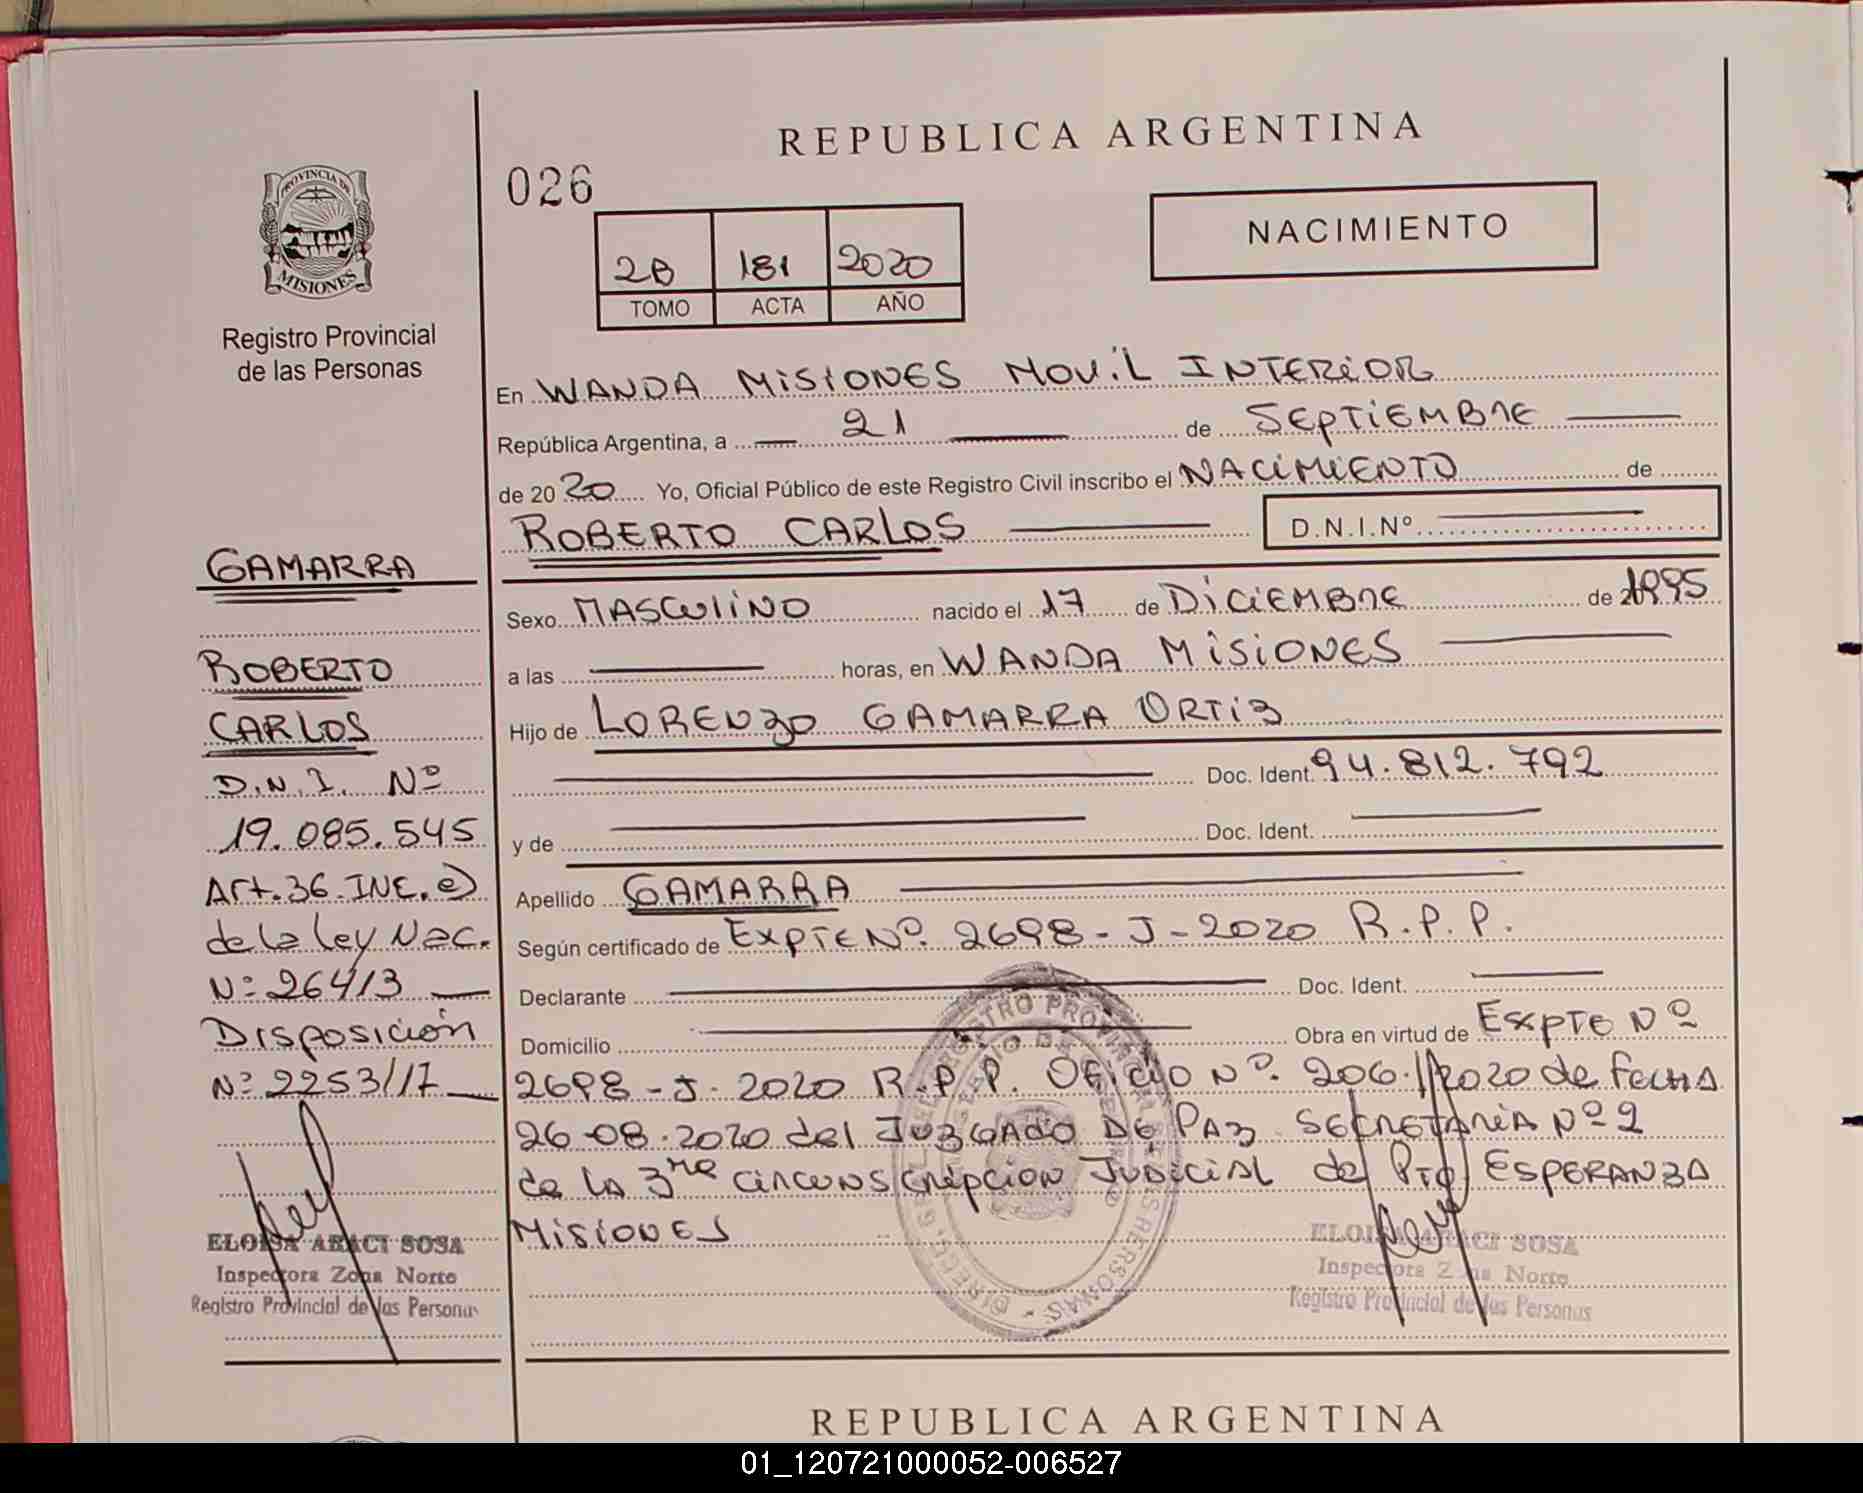 REPUBLICA ARGENTINA
026
NACIMIENTO
2B 181 2020
TOMO ACTA AÑO
PROVINCIA DE
MISIONES
Registro Provincial
de las Personas
En WANDA MISIONES MOVIL INTERIOR
República Argentina, a 21 de SEPTIEMBRE
de 20 20 Yo, Oficial Público de este Registro Civil inscribo el NACIMIENTO de
ROBERTO CARLOS D.N.I.Nº
Sexo MASCULINO nacido el 17 de DICIEMBRE de 1995
a las horas, en WANDA MISIONES
Hijo de LORENZO GAMARRA ORTIZ
Doc. Ident. 94.812.792
y de Doc. Ident.
Apellido GAMARRA
Según certificado de EXPTE Nº. 2698-J-2020 R.P.P.
Declarante Doc. Ident.
Domicilio Obra en virtud de EXPTE Nº
2698-J-2020 R.P.P. OFICIO Nº. 206/2020 de FECHA
26-08-2020 del JUZGADO DE PAZ SECRETARIA Nº2
de LA 3ra CIRCUNSCRIPCION JUDICIAL de Pto ESPERANZA
MISIONES
GAMARRA
ROBERTO
CARLOS
D.N.I. Nº
19.085.545
Art.36.INC.e)
de la Ley Nac.
Nº 26413
DISPOSICIÓN
Nº 2253/17
ELOISA ARACI SOSA
Inspectora Zona Norte
Registro Provincial de las Personas
ELOISA ARACI SOSA
Inspectora Zona Norte
Registro Provincial de las Personas
REPUBLICA ARGENTINA
01_120721000052-006527